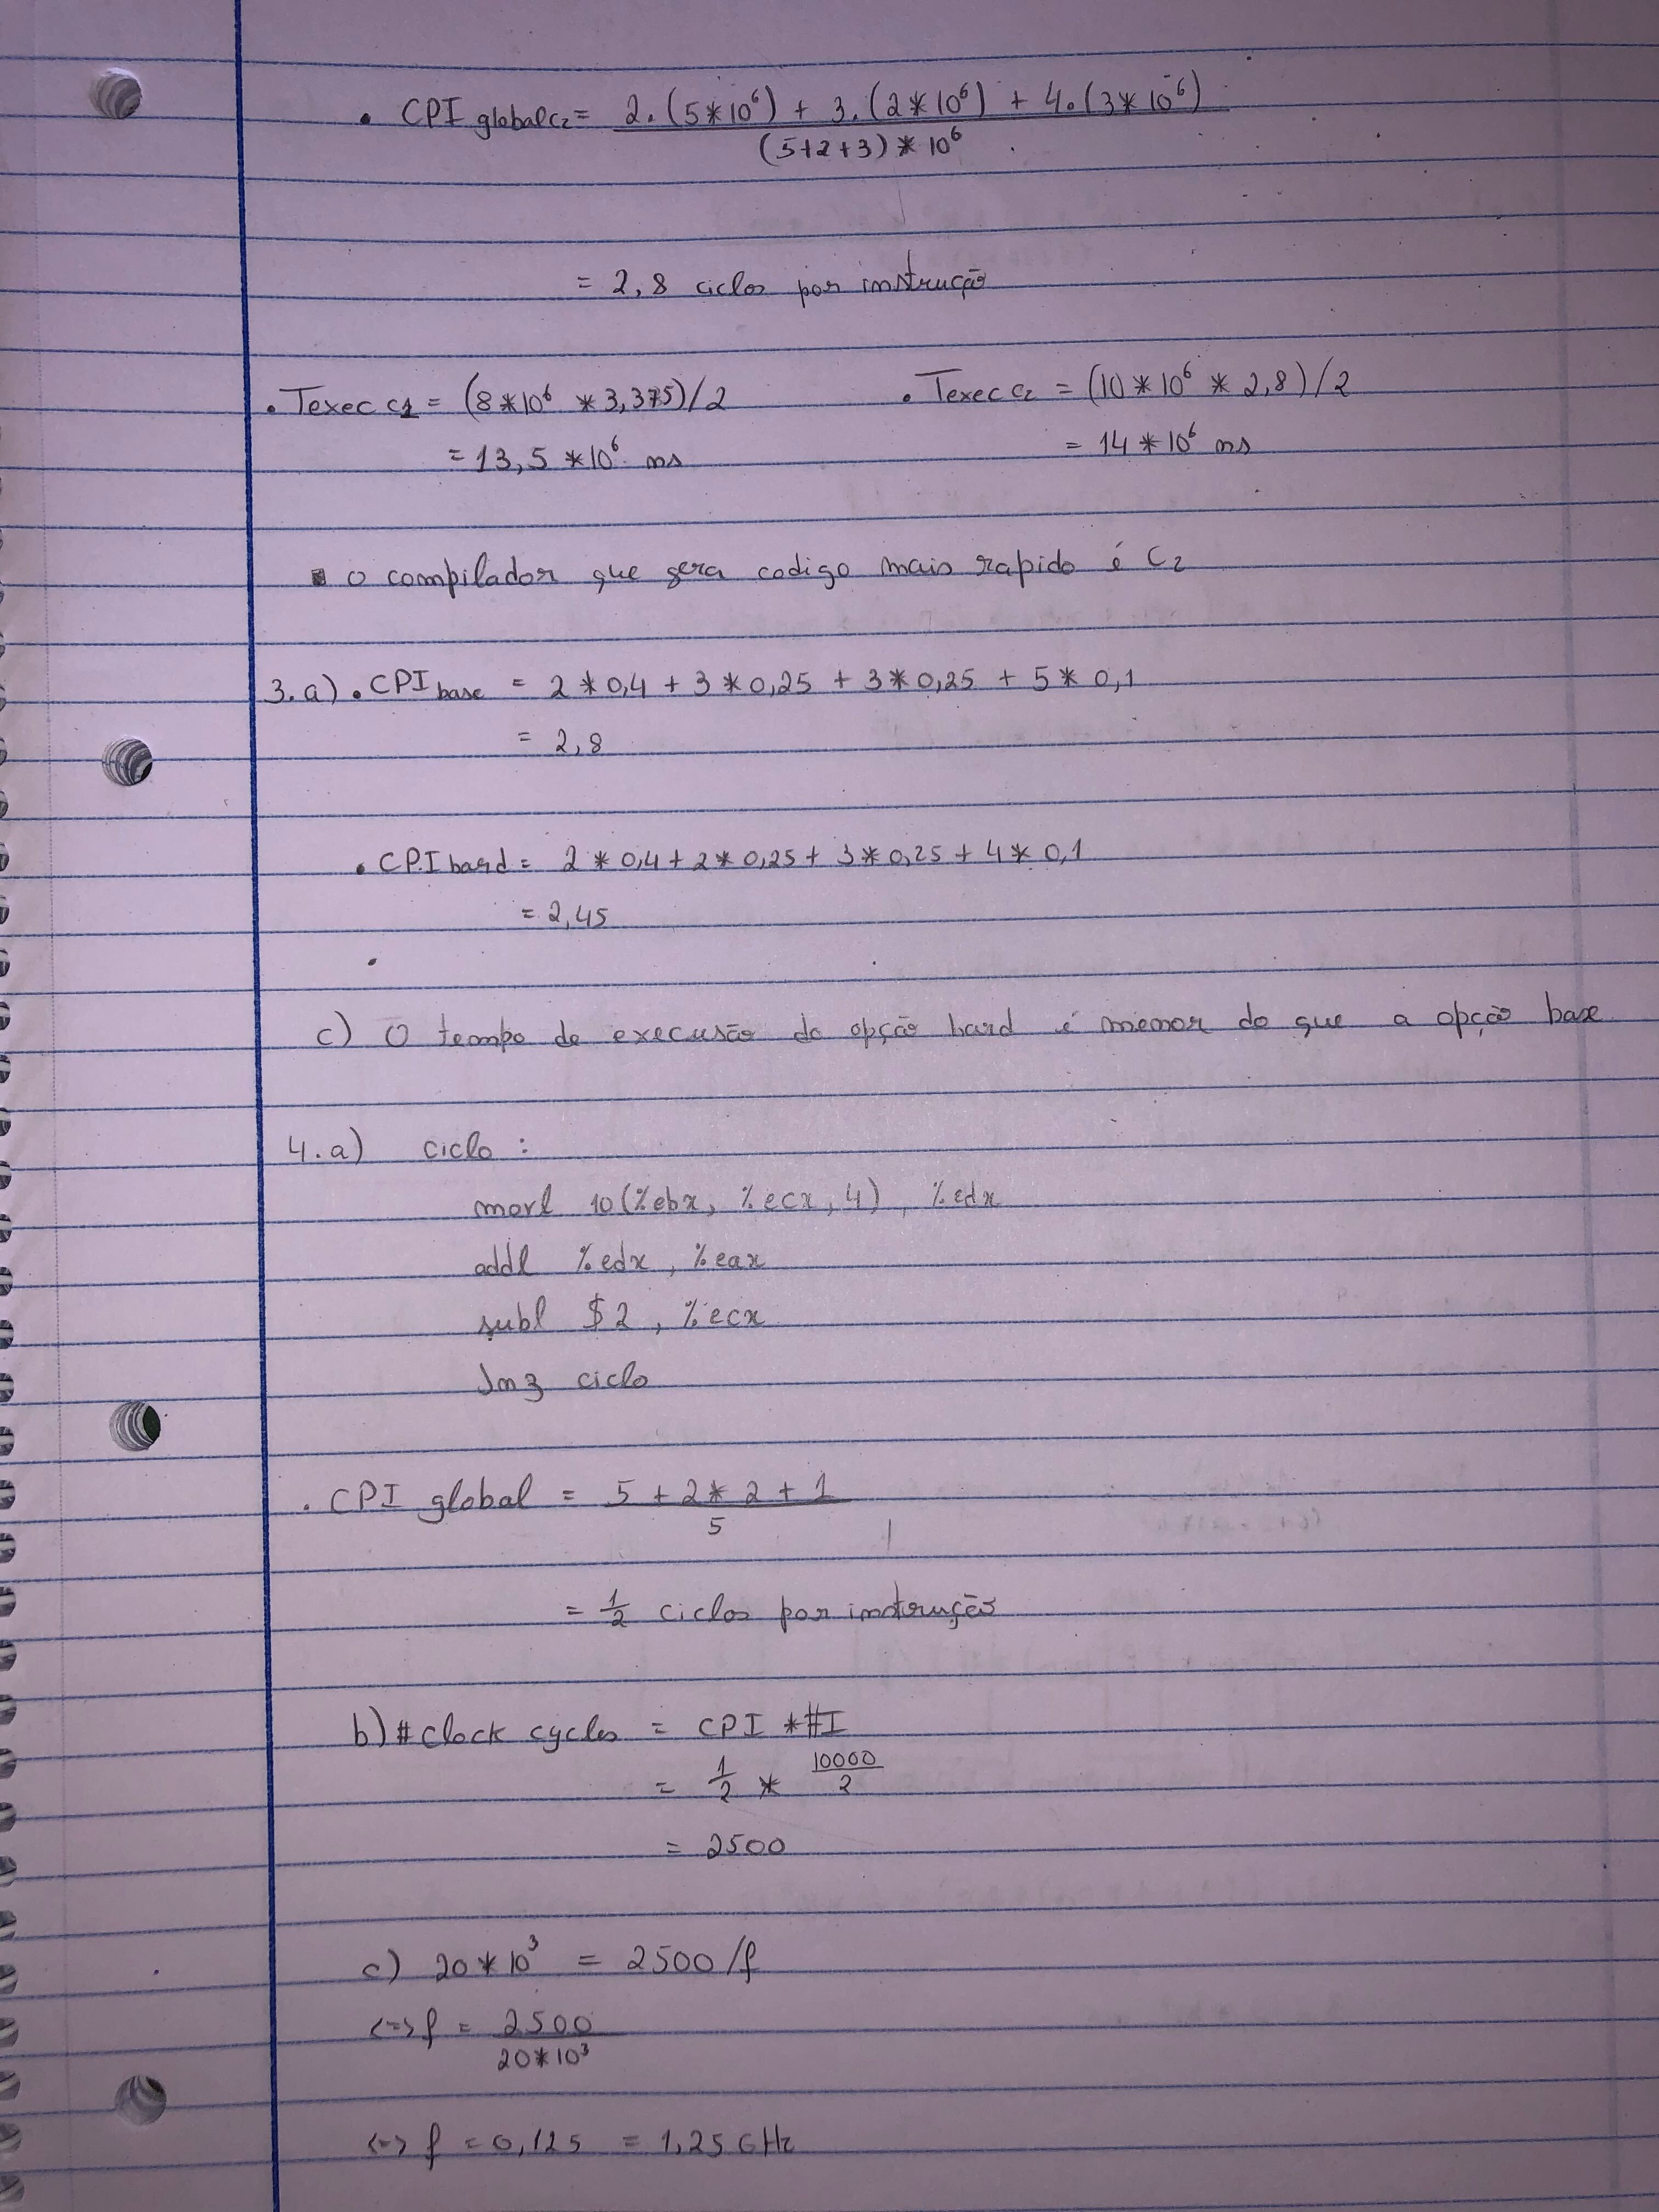 • CPI globalC2 = 2.(5*10⁶) + 3.(2*10⁶) + 4.(3*10⁶)
(5+2+3)*10⁶
= 2,8 ciclos por instrução
• Texec C1 = (8*10⁶ *3,375)/2 • Texec C2 = (10*10⁶ * 2,8)/2
= 13,5 *10⁶ ns = 14*10⁶ ns
o compilador que gera codigo mais rapido é C2
3.a) • CPI base = 2*0,4 + 3*0,25 + 3*0,25 + 5*0,1
= 2,8
• CPI hard = 2*0,4 + 2*0,25 + 3*0,25 + 4*0,1
= 2,45
c) O tempo de execusão da opção hard é menor do que a opção base
4.a) ciclo :
movl 10(%ebx, %ecx, 4), %edx
addl %edx, %eax
subl $2, %ecx
Jnz ciclo
• CPI global = 5 + 2*2 + 1
5
= 1/2 ciclos por instrução
b) #clock cycles = CPI *#I
= 1/2 * 10000/2
= 2500
c) 20*10³ = 2500/f
<=> f = 2500
20*10³
<=> f = 0,125 = 1,25 GHz